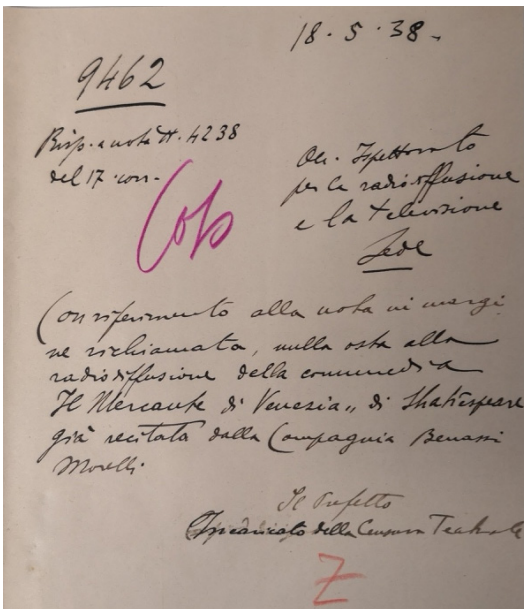 18 · 5 · 38 -
9462
Risp. a nota N. 4238
del 17 · corr -
On. Ispettorato
per la radiodiffusione
e la televisione
Sede
Con riferimento alla nota in margi
ne richiamata, nulla osta alla
radiodiffusione della commedia
Il Mercante di Venezia„ di Shakespeare
già recitata dalla Compagnia Benassi
Morelli
Il Prefetto
Incaricato della Censura Teatrale
Z